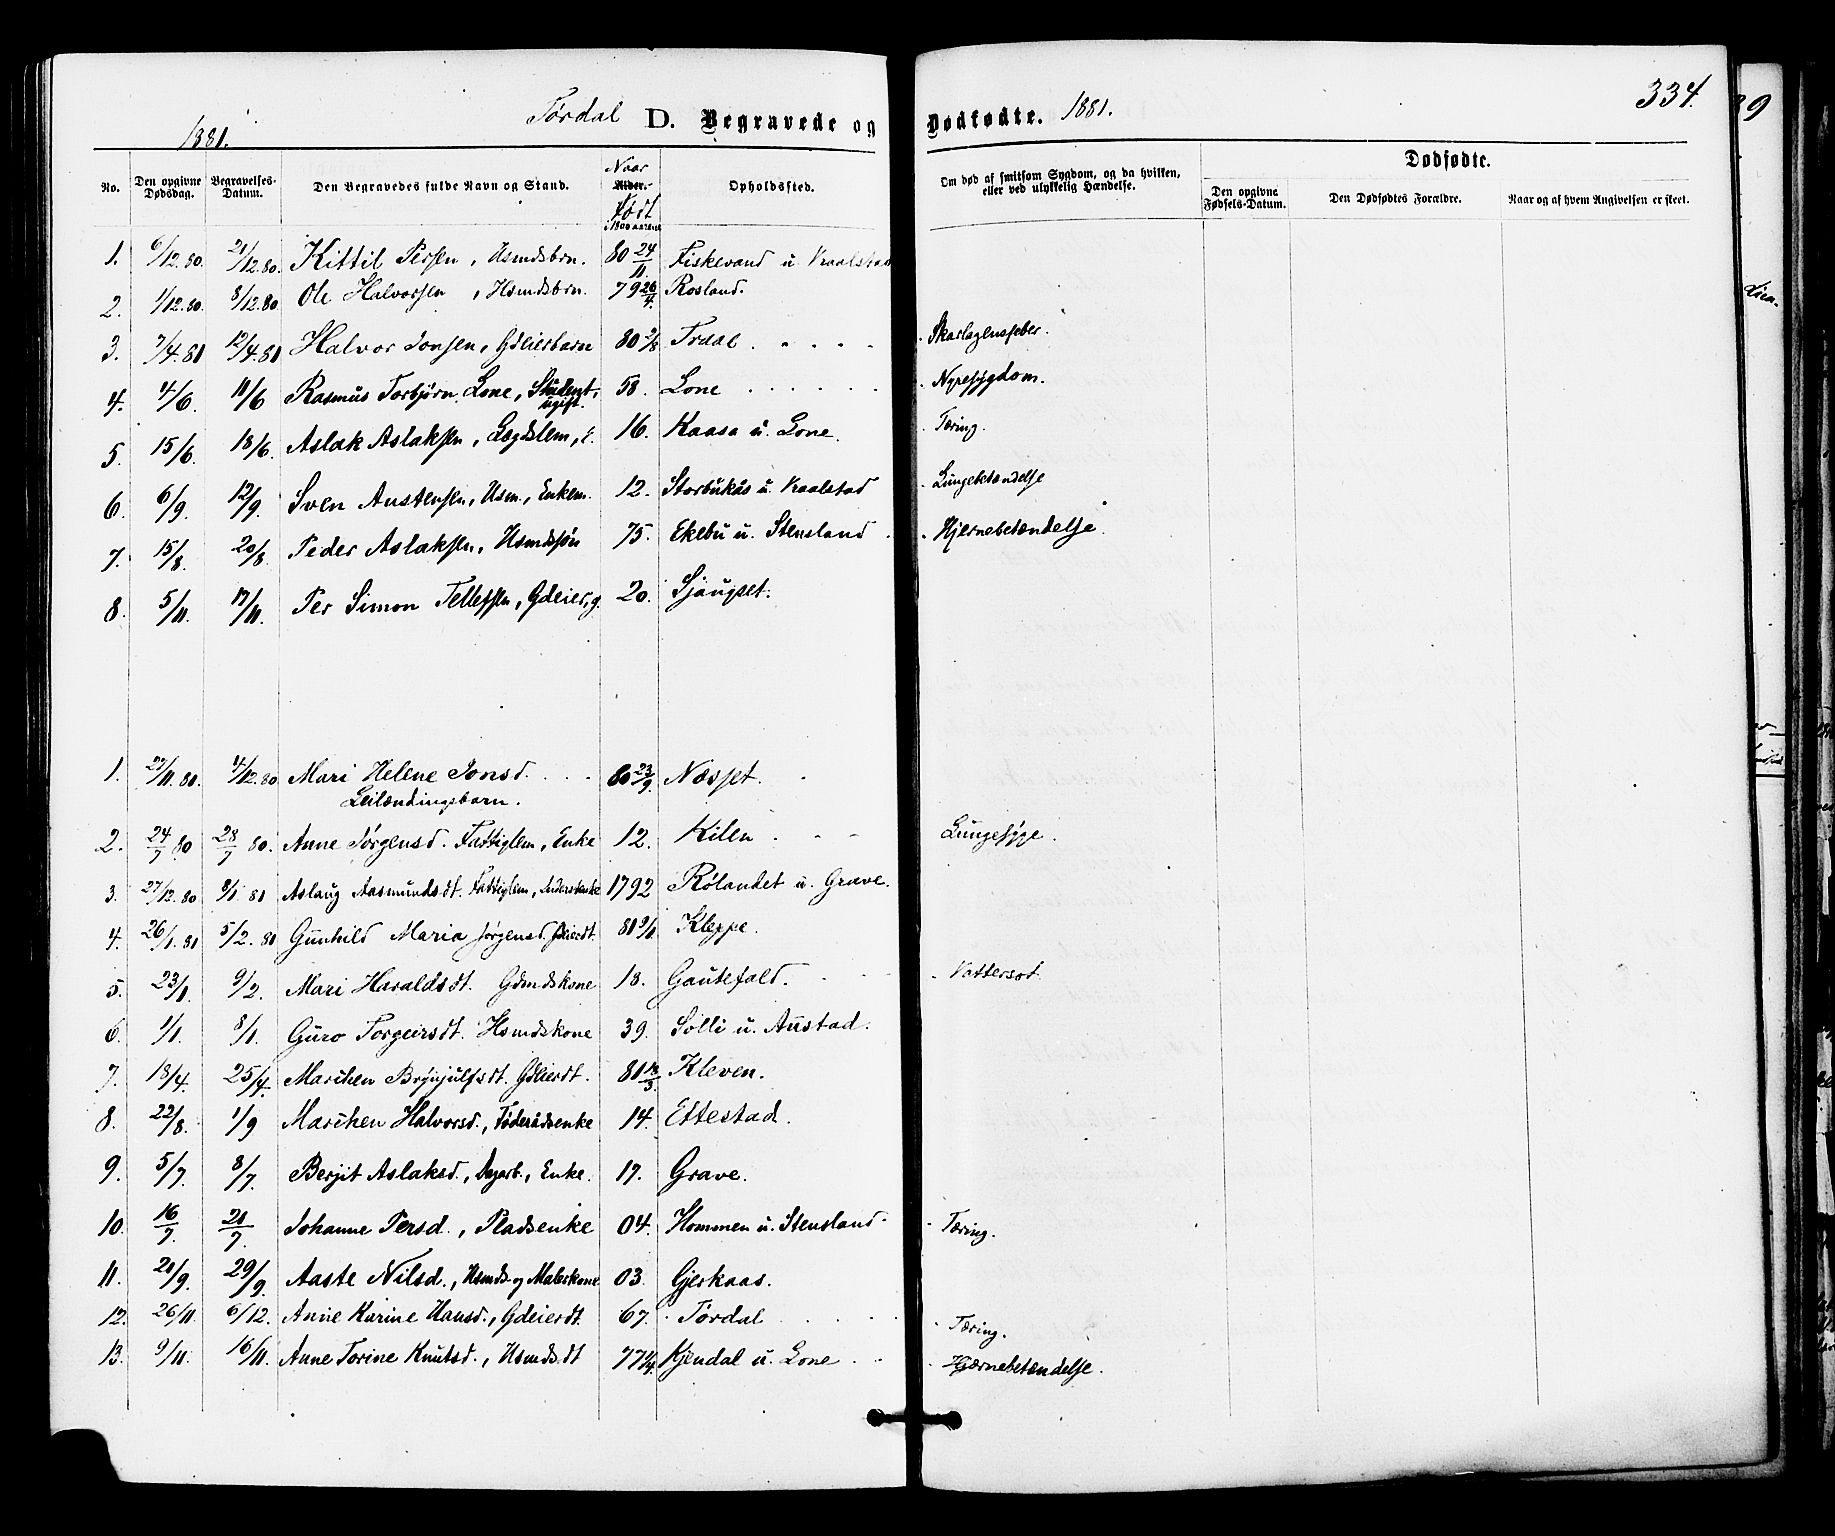 334.
Tørdal D. Begravede og Dødfødte. 1881.
1881.
No. Den opgivne Dødsdag. Begravelses-Datum. Den Begravedes fulde Navn og Stand. Naar Alder. Født i 1800 aarene Opholdssted. Om død af smitsom Sygdom, og da hvilken, eller ved ulykkelig Hændelse. Dødfødte.
Den opgivne Fødsels-Datum. Den Dødfødtes Forældre. Naar og af hvem Angivelsen er skeet.
1. 6/12.80. 21/12.80. Kittil Persen, Husmdsbrn. 80 24/11. Fiskevand u Kraalstad
2. 1/12.80. 8/12.80 Ole Halvorsen, Hsmdsbrn. 79 26/4. Rosland.
3. 7/4.81 12/4.81 Halvor Jonsen, Gdeierbarn 80 2/8 Traae . . . . . Skarlagensfeber.
4. 4/6. 11/6 Rasmus Torbjørn Lone, Student, ugift. 58. Lone . . . . . . Nyresygdom.
5. 15/6. 18/6. Aslak Aslaksen, Lægdslem, E. 16. Kaasa u. Lone. Tæring.
6. 6/9. 12/9. Sven Austensen, Usm., Enkem. 12. Storbukås u. Kraalstad . Lungebetændelse
7. 15/8. 20/8. Peder Aslaksen, Usmdssøn 75. Ekebu u. Stensland . . Hjernebetændelse.
8. 5/11. 17/11. Per Simon Tellefsen, Gdeier, g. 20. Sjaugset.
1. 27/11.80. 4/12.80 Mari Helene Jonsd. . . . 80 23/9. Næsset.
Leilændingsbarn.
2. 24/7 80 28/7 80. Anne Jørgensd. Fattiglem, Enke 12. Kilen . . . Lungesyge.
3. 27/12.80 8/1 81 Aslaug Aasmundsdt. Fattiglem, Inderstenke 1792 Rølandet u. Grave.
4. 26/1.81 5/2.80 Gunhild Maria Jørgensd. Gdeierdt. 81 9/1 Kleppe.
5. 23/1. 9/2. Mari Haraldsdt. Gdmdskone 18. Gautefald. . . . Vattersot.
6. 1/1. 8/1. Guro Torgeirsdt. Hsmdskone 39. Solli u. Austad.
7. 18/4. 25/4. Marichen Brynjulfsdt. Gdeierdt. 81 18/3. Kleven.
8. 22/8. 1/9 Marichen Halvorsd., Føderådsenke 14. Ettestad.
9. 5/7. 8/7. Berjit Aslaksd., Dagarb., Enke. 17. Grave.
10. 16/7. 21/7. Johanne Persd., Pladsenke 04. Hommen u. Stensland. . Tæring.
11. 21/9. 29/9. Aaste Nilsd., Usmds- og Malerkone 03. Gjerkaas.
12. 26/11. 6/12. Anne Karine Hansd., Gdeierdt. 67. Tørdal . . . . . Tæring.
13. 9/11. 16/11. Anne Torine Knutsd., Usmdsdt 77 1/4. Kjendal u. Lone . . . Hjærnebetændelse.